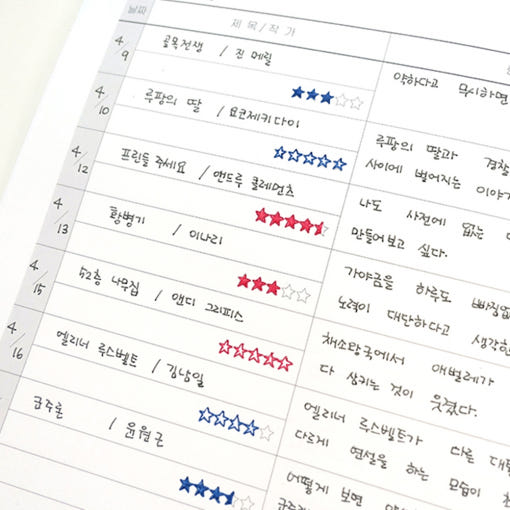 날짜
제 목 / 작 가
4/9
골목전쟁 / 진 메릴
약하다고 무시하면
4/10
루팡의 딸 / 요코제키 다이
루팡의 딸과 경찰
사이에 벌어지는 이야기
4/12
프린들 주세요 / 앤드루 클레먼츠
나도 사전에 없는
만들어보고 싶다.
4/13
황병기 / 이나리
가야금을 하루도
노력이 대단하다고 생각한
4/15
52층 나무집 / 앤디 그리피스
채소왕국에서 애벌레가
다 삼키는 것이 웃겼다.
4/16
엘리너 루스벨트 / 김남일
엘리너 루스벨트가 다른
다르게 연설을 하는 모습이
군주론 / 윤원근
어떻게 보면